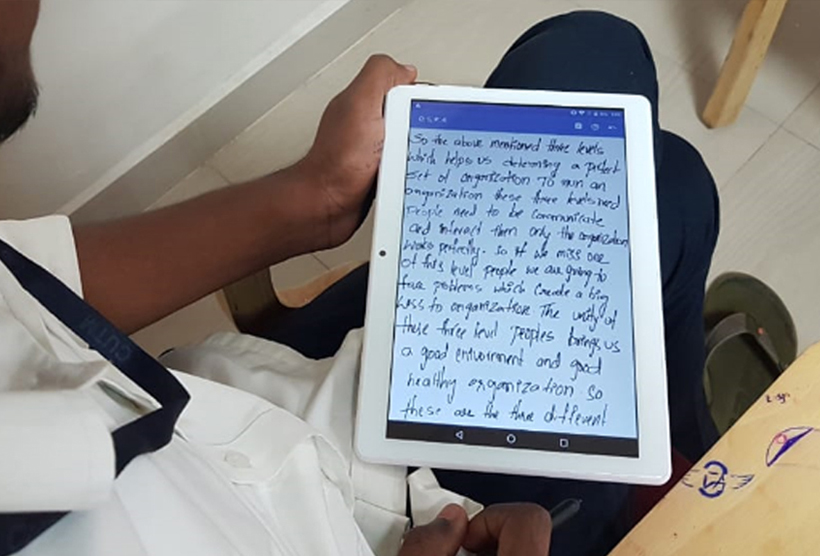 So the above mentioned three levels
which helps us determing a perfect
set of organization To run an
organization these three levels need
people need to be communicate
and interact then only the organization
works perfectly. so if we miss one
of this level people we are going to
face problems which create a big
loss to organization. The unity of
these three level peoples brings us
a good enviroment and good
healthy organization so
these are the three different
CUTM